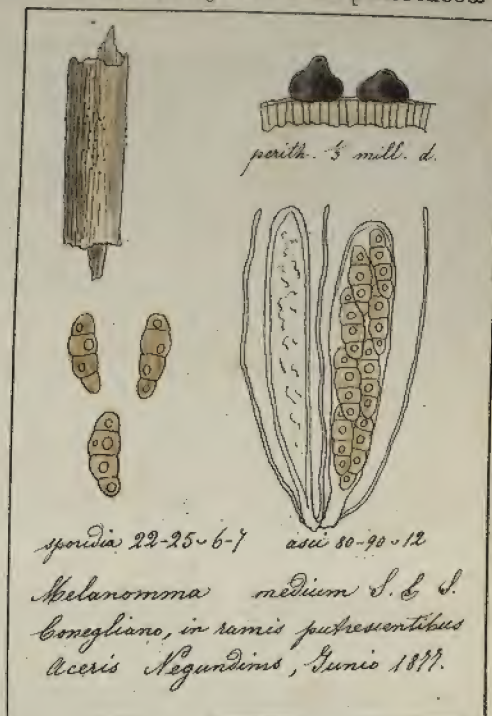 perith. ⅓ mill. d.
sporidia 22-25 ⌣ 6-7
asci 80-90 ⌣ 12
Melanomma medium S. & S.
Conegliano, in ramis putrescentibus
Aceris Negundinis, Junio 1877.